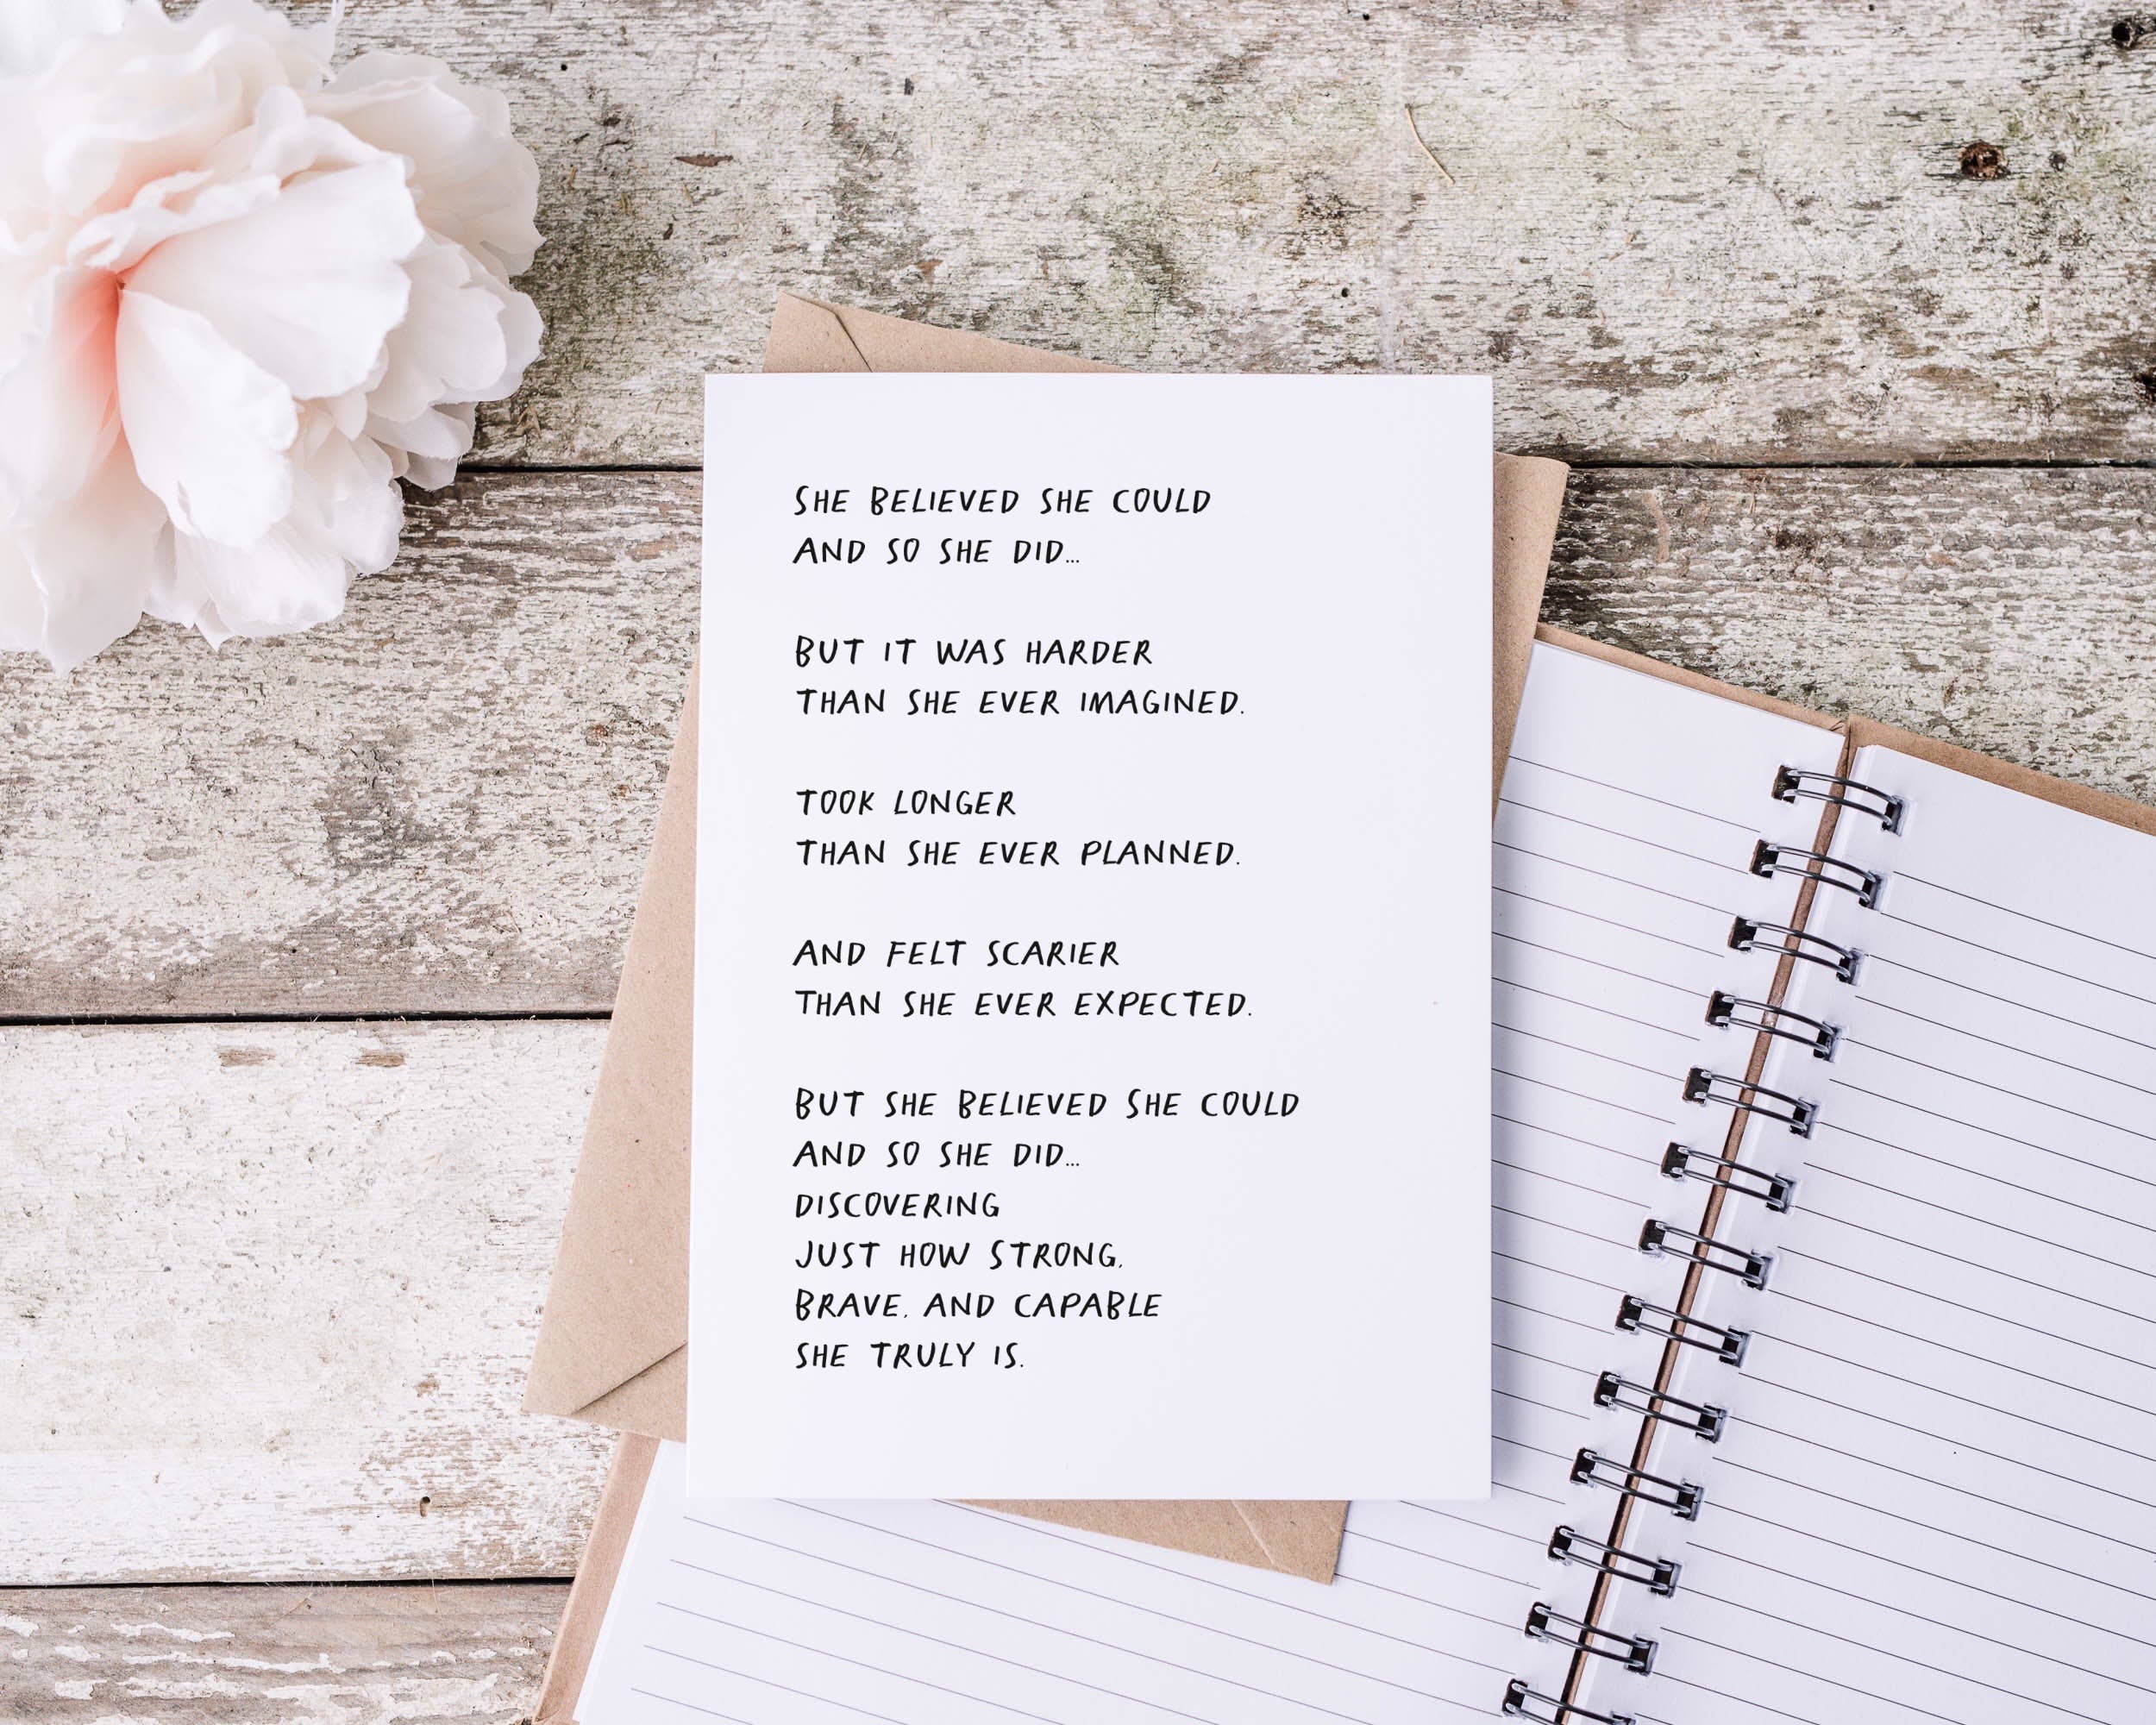 SHE BELIEVED SHE COULD
AND SO SHE DID...
BUT IT WAS HARDER
THAN SHE EVER IMAGINED.
TOOK LONGER
THAN SHE EVER PLANNED.
AND FELT SCARIER
THAN SHE EVER EXPECTED.
BUT SHE BELIEVED SHE COULD
AND SO SHE DID...
DISCOVERING
JUST HOW STRONG,
BRAVE, AND CAPABLE
SHE TRULY IS.